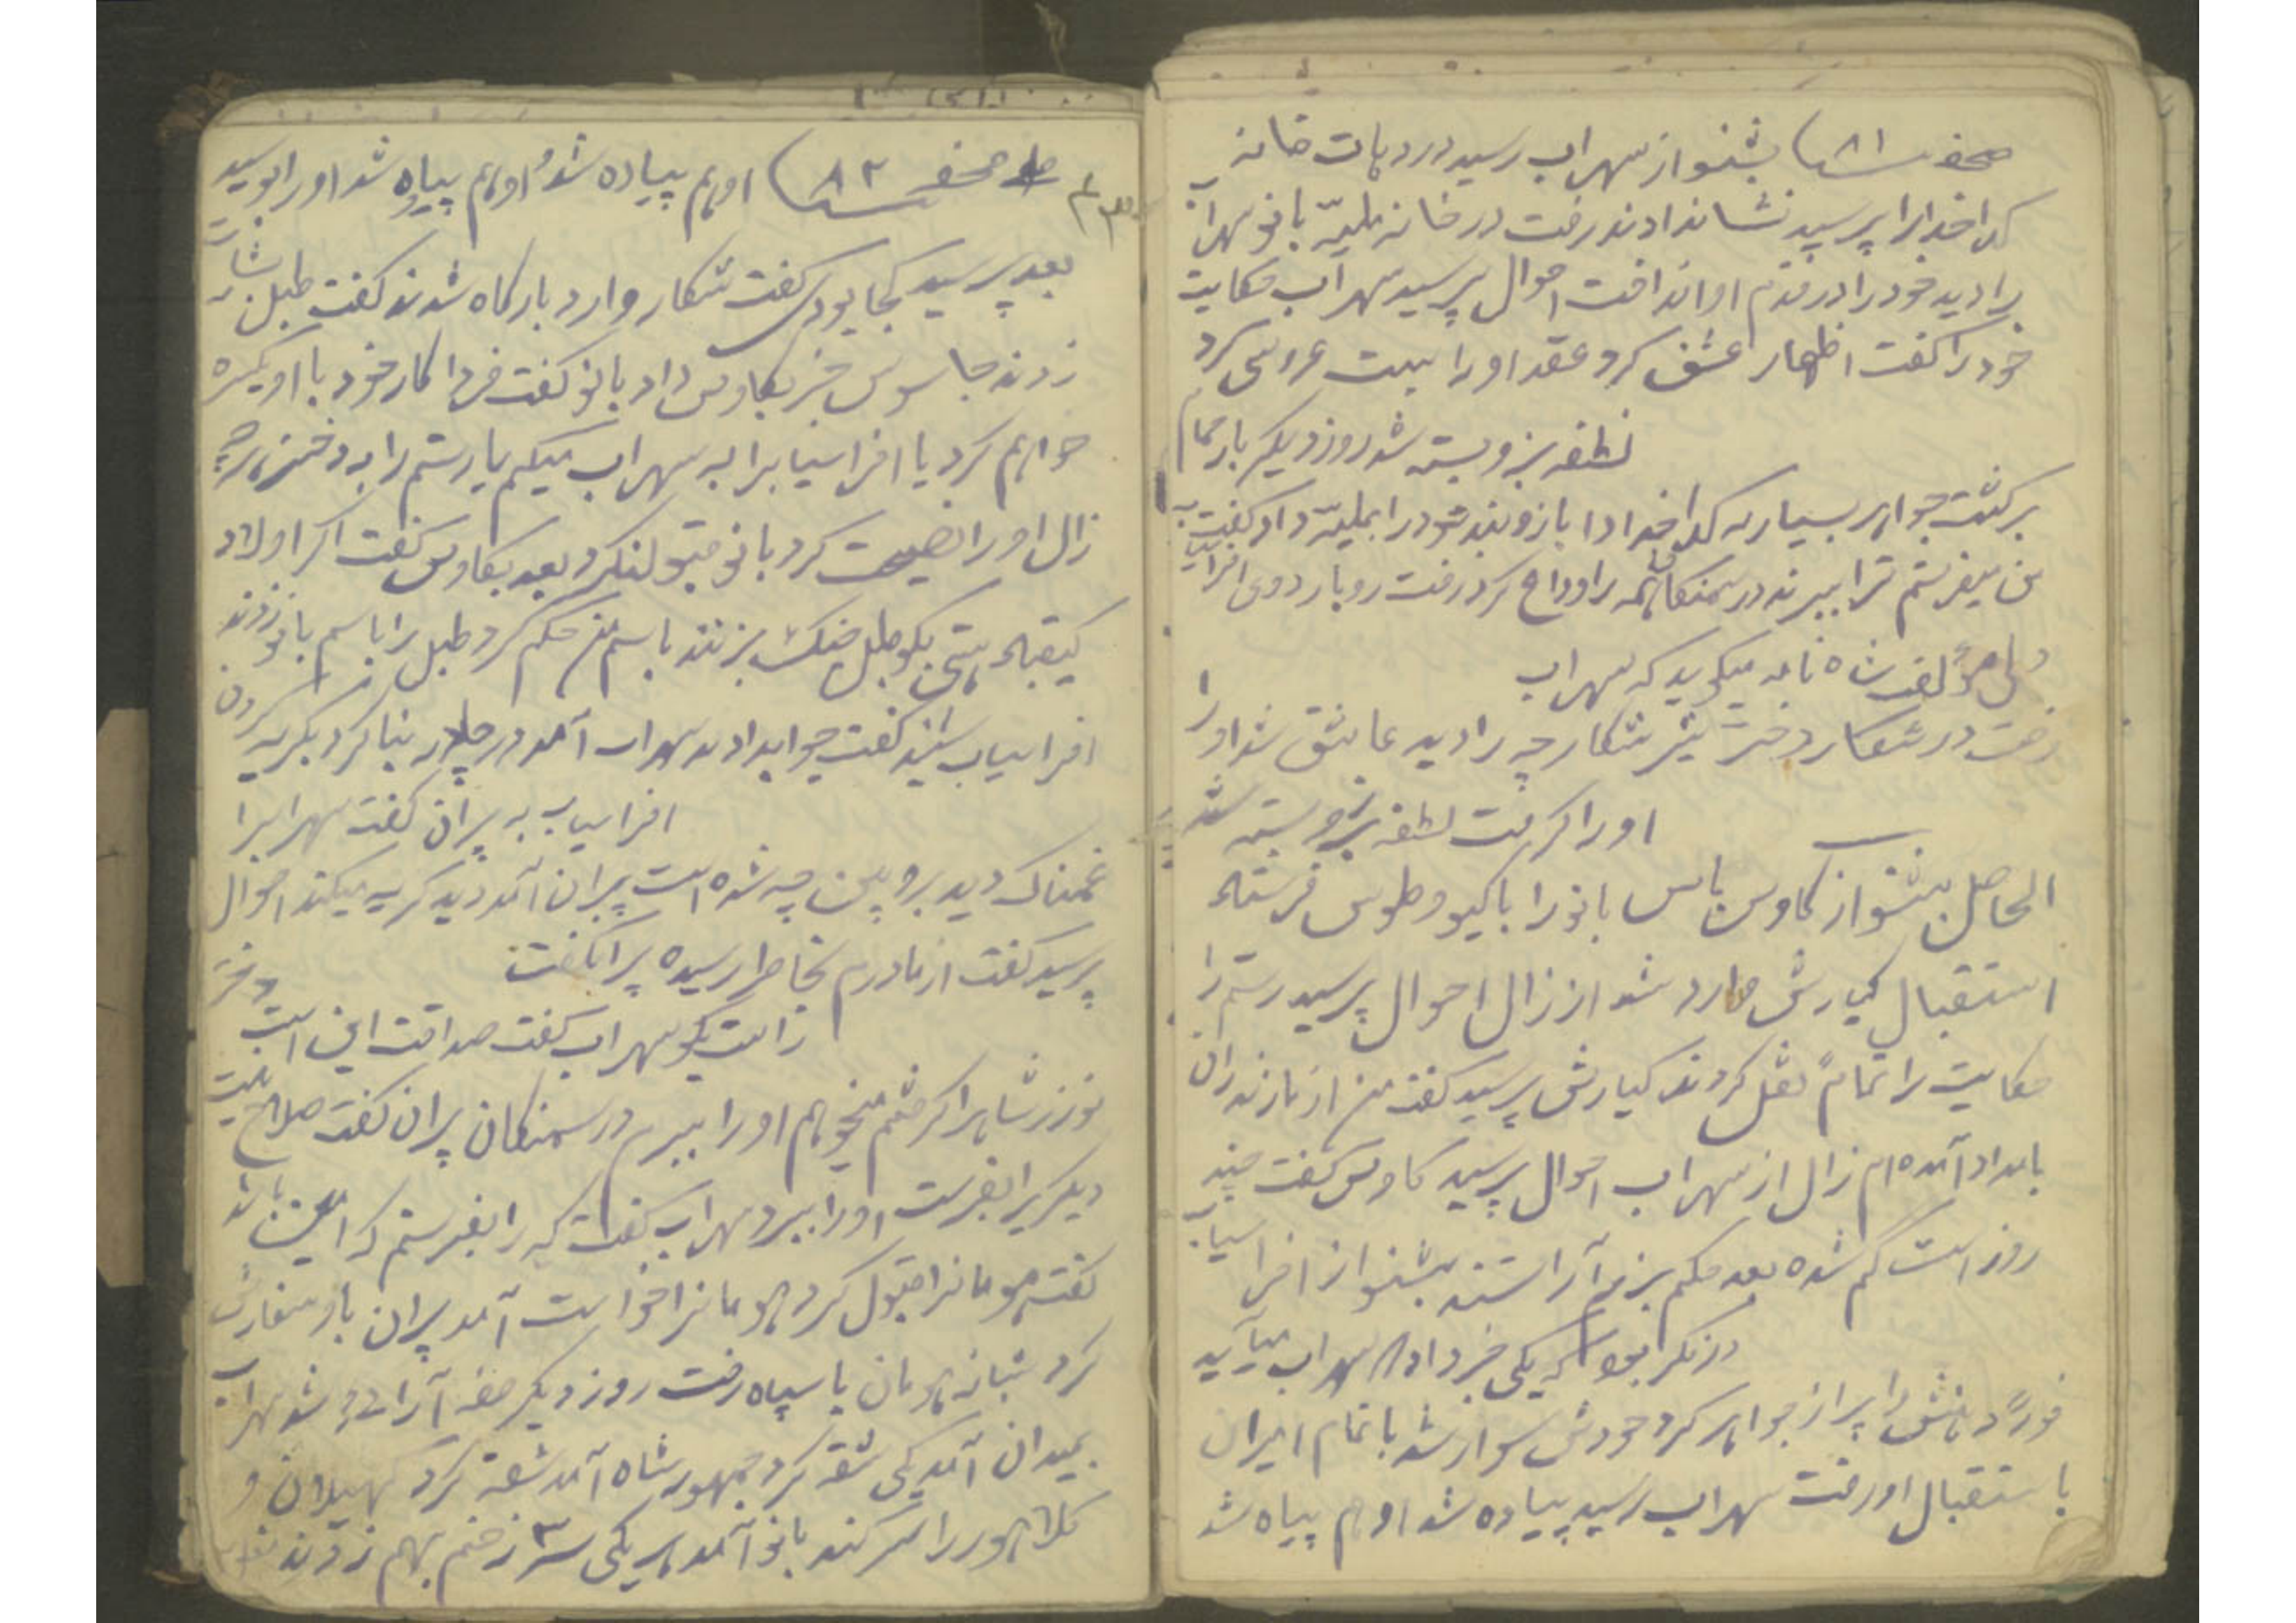 صحفه ۸۱ بشنو از سهراب رسید در دهات خانه
کداخدارا پرسید نشاندادند رفت در خانه بانو سهراب
را دید خود را در قدم او انداخت احوال پرسید سهراب حکایت
خود را گفت اظهار عشق کرد عقد او را بست عروسی کرد
نطفه بر او بسته شد روز دیگر بار تمام
برگشت جواهر بسیار به کداخدا داد بازوبند خود را داد گفت
من میفرستم ترا ببرند در سمنگان همه را وداع کرد رفت رو باردوی افراسیاب
ولی مؤلف شاه نامه میگوید که سهراب
رفت در شکار دختر شکارچه را دید عاشق شد او را
او را گرفت نطفه بر او بسته شد
الحاصل بشنو از کاوس بانو را با گیو و طوس فرستاد
استقبال کیارش وارد شد از زال احوال پرسید رستم را
حکایت را تماماً نقل کردند کیارش پرسید گفت من از مازندران
بامداد آمده ام زال از سهراب احوال پرسید کاوس گفت چند
روز است گم شده بعد حکم بزم آراستند بشنو از افراسیاب
در فکر بود که یکی خبر داد سهراب میآید
فوراً دهانش را پر از جواهر کرد خودش سوار شد با تمام امیران
باستقبال او رفت سهراب رسید پیاده شد او هم پیاه شد
صحفه ۸۲ او هم پیاده شد او هم پیاه شد او را بوسید
بعد پرسید کجا بودی گفت شکار وارد بارگاه شدند گفت طبل بشارت
زدند جاسوس خبر بکاوس داد بانو گفت فردا کار خود با او یکسره
خواهم کرد یا افراسیابرا به سهراب میکم یا رستم را به دختر
زال او را نصیحت کرد بانو قبول نکرد بعد بکاوس گفت اگر اولاد
کیقباد هستی بگو طبل جنگ بزنند باسم من حکم کرد طبل را باسم بانو زدند
افراسیاب شنید گفت جواب دادند سهراب آمد در چادر بنا کرد بگریه کردن
افراسیاب به پیران گفت سهرابرا
غمناک دید برو ببین چه شده است پیران آمد دید گریه میکند احوال
پرسید گفت از مادرم بخاطرم رسیده پیران گفت
راست بگو سهراب گفت صداقت این است دختر
نوزر شاه را گرفتم میخواهم او را ببرم در سمنگان پیران گفت صلاح نیست
دیگریرا بفرست او را ببرد سهراب گفت که را بفرستم که امین باشد
گفت هومانرا قبول کرد هومانرا خواست آمد پیران باو سفارش
کرد شبانه هومان با سپاه رفت روز دیگر صف آراسته شد سهراب
بمیدان آمد یکی شقه کرد جمهور شاه آمد شقه کرد کهیلان و
کلاهور را سر کند بانو آمد هر یکی ۳ زخم بهم زدند